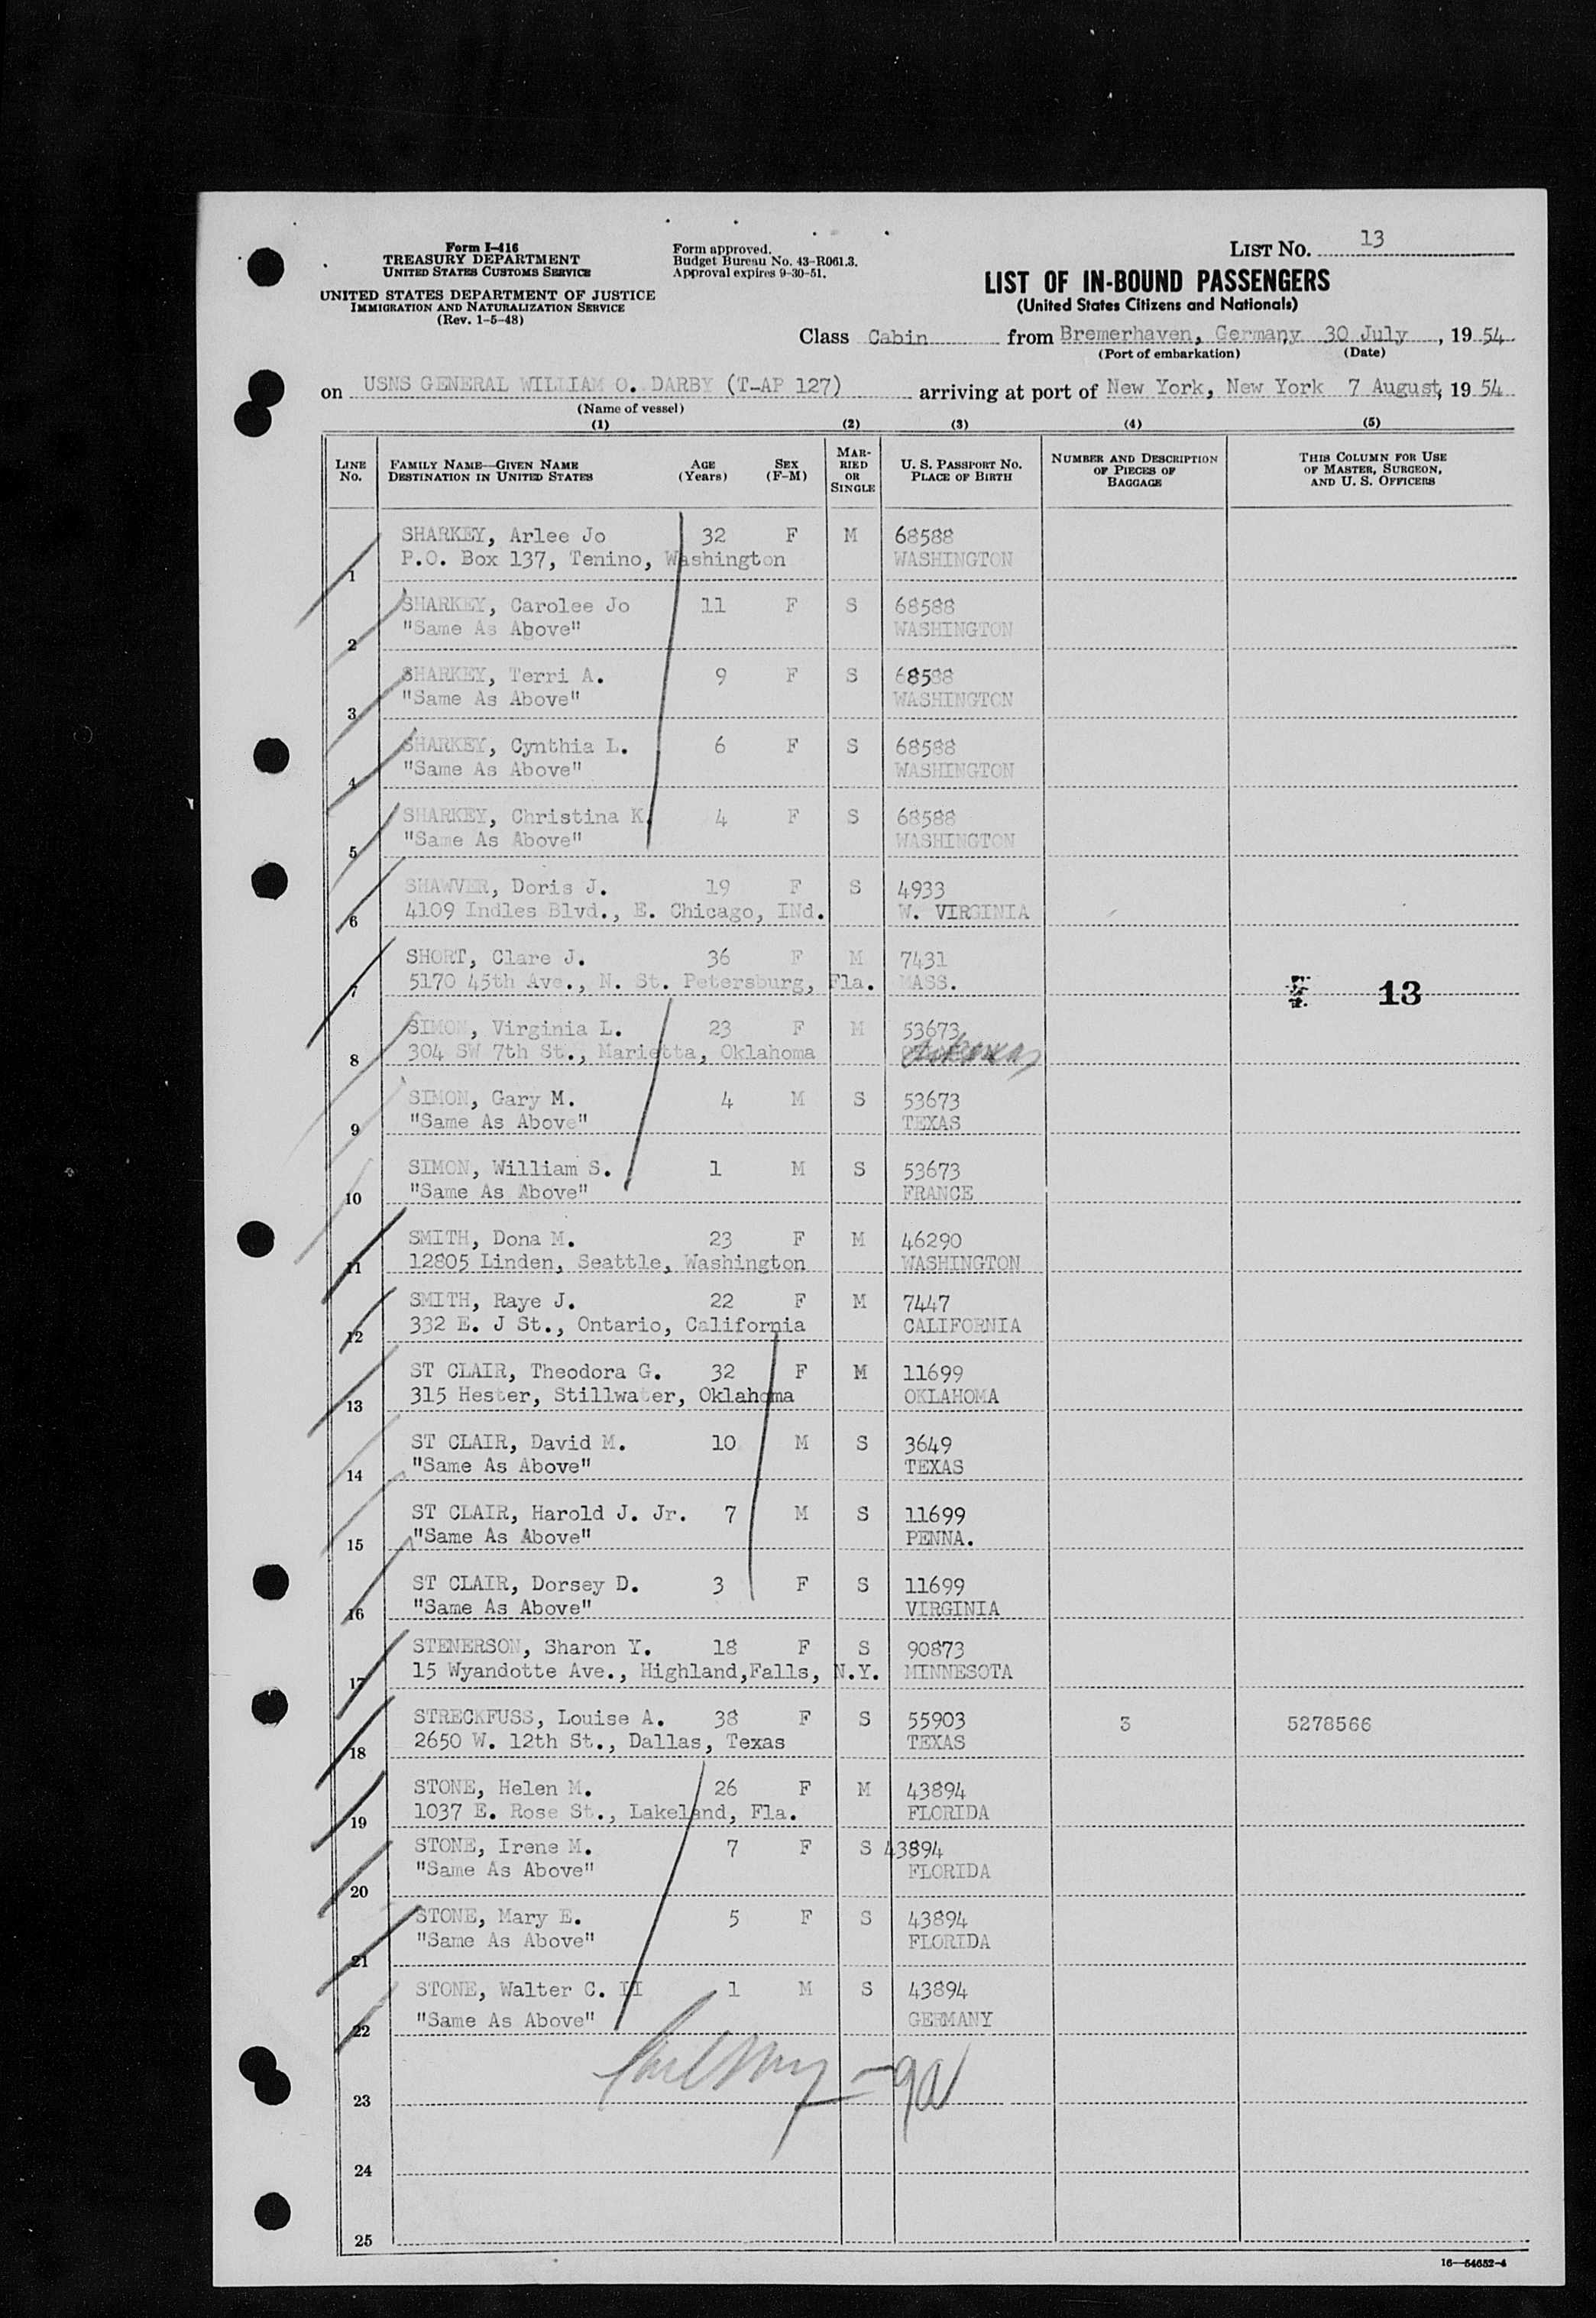 Form I-416
TREASURY DEPARTMENT
UNITED STATES CUSTOMS SERVICE
UNITED STATES DEPARTMENT OF JUSTICE
IMMIGRATION AND NATURALIZATION SERVICE
(Rev. 1-5-48)
Form approved.
Budget Bureau No. 43-R061.3.
Approval expires 9-30-51.
LIST No. 13
LIST OF IN-BOUND PASSENGERS
(United States Citizens and Nationals)
Class Cabin from Bremerhaven, Germany, 30 July, 19 54
(Port of embarkation) (Date)
on USNS GENERAL WILLIAM O. DARBY (T-AP 127) arriving at port of New York, New York 7 August, 19 54
(Name of vessel)
(1) (2) (3) (4) (5)
LINE No. FAMILY NAME—GIVEN NAME DESTINATION IN UNITED STATES AGE (Years) SEX (F-M) MARRIED OR SINGLE U. S. PASSPORT No. PLACE OF BIRTH NUMBER AND DESCRIPTION OF PIECES OF BAGGAGE THIS COLUMN FOR USE OF MASTER, SURGEON, AND U. S. OFFICERS
SHARKEY, Arlee Jo 32 F M 68588
1 P.O. Box 137, Tenino, Washington WASHINGTON
SHARKEY, Carolee Jo 11 F S 68588
2 "Same As Above" WASHINGTON
SHARKEY, Terri A. 9 F S 68588
3 "Same As Above" WASHINGTON
SHARKEY, Cynthia L. 6 F S 68588
4 "Same As Above" WASHINGTON
SHARKEY, Christina K. 4 F S 68588
5 "Same As Above" WASHINGTON
SHAWVER, Doris J. 19 F S 4933
6 4109 Indles Blvd., E. Chicago, INd. W. VIRGINIA
SHORT, Clare J. 36 F M 7431
7 5170 45th Ave., N. St. Petersburg, Fla. MASS.
13
SIMON, Virginia L. 23 F M 53673
8 304 SW 7th St., Marietta, Oklahoma Arkansas
SIMON, Gary M. 4 M S 53673
9 "Same As Above" TEXAS
SIMON, William S. 1 M S 53673
10 "Same As Above" FRANCE
SMITH, Dona M. 23 F M 46290
11 12805 Linden, Seattle, Washington WASHINGTON
SMITH, Raye J. 22 F M 7447
12 332 E. J St., Ontario, California CALIFORNIA
ST CLAIR, Theodora G. 32 F M 11699
13 315 Hester, Stillwater, Oklahoma OKLAHOMA
ST CLAIR, David M. 10 M S 3649
14 "Same As Above" TEXAS
ST CLAIR, Harold J. Jr. 7 M S 11699
15 "Same As Above" PENNA.
ST CLAIR, Dorsey D. 3 F S 11699
16 "Same As Above" VIRGINIA
STENERSON, Sharon Y. 18 F S 90873
17 15 Wyandotte Ave., Highland,Falls, N.Y. MINNESOTA
STRECKFUSS, Louise A. 38 F S 55903 3 5278566
18 2650 W. 12th St., Dallas, Texas TEXAS
STONE, Helen M. 26 F M 43894
19 1037 E. Rose St., Lakeland, Fla. FLORIDA
STONE, Irene M. 7 F S 43894
20 "Same As Above" FLORIDA
STONE, Mary E. 5 F S 43894
21 "Same As Above" FLORIDA
STONE, Walter C. II 1 M S 43894
22 "Same As Above" GERMANY
23
24
25
16—54652-4